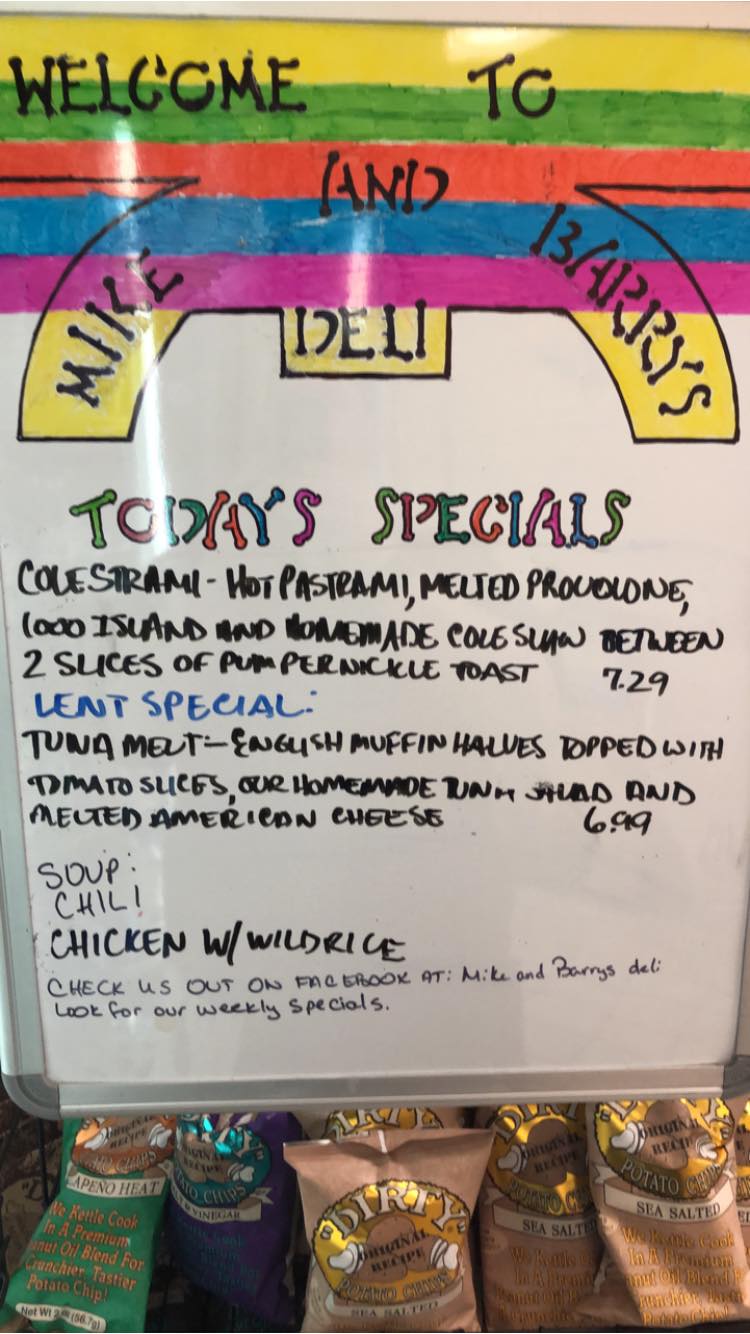 WELCOME TO
MIKE AND BARRY'S
DELI
TODAY'S SPECIALS
COLESTRAMI - HOT PASTRAMI, MELTED PROVOLONE,
1000 ISLAND AND HOMEMADE COLE SLAW BETWEEN
2 SLICES OF PUMPERNICKLE TOAST 7.29
LENT SPECIAL:
TUNA MELT - ENGLISH MUFFIN HALVES TOPPED WITH
TOMATO SLICES, OUR HOMEMADE TUNA SALAD AND
MELTED AMERICAN CHEESE 6.99
SOUP:
CHILI
CHICKEN W/ WILD RICE
CHECK US OUT ON FACEBOOK AT: Mike and Barrys deli
Look for our weekly specials.
ORIGINAL
RECIPE
CHIPS
APEÑO HEAT
We Kettle Cook
In A Premium
nut Oil Blend For
Crunchier, Tastier
Potato Chip!
Net Wt 2 oz (56.7g)
CHIPS
VINEGAR
"DIRTY"
ORIGINAL
RECIPE
POTATO CHIPS
SEA SALTED
ORIGINAL
RECIPE
POTATO
SEA SALTED
We Kettle Cook
In A Premium
ORIGINAL
RECIPE
POTATO CHIPS
SEA SALTED
We Kettle Cook
In A Premium
nut Oil Blend F
Potato Chip!